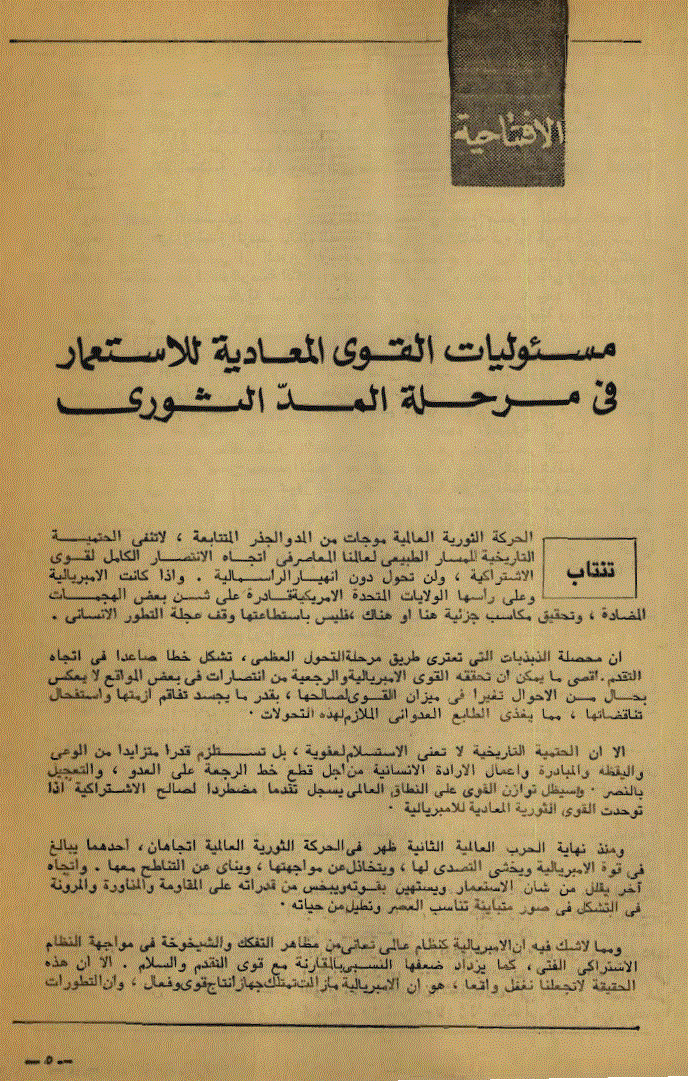 الافتتاحية
مسئوليات القوى المعادية للاستعمار
فى مرحلة المدّ الثورى
تنتاب
الحركة الثورية العالمية موجات من المد والجذر المتتابعة ، لاتنفى الحتمية
التاريخية للمسار الطبيعى لعالمنا المعاصر فى اتجاه الانتصار الكامل لقوى
الاشتراكية ، ولن تحول دون انهيار الراسمالية . واذا كانت الامبريالية
وعلى رأسها الولايات المتحدة الامريكية قادرة على شن بعض الهجمات
المضادة ، وتحقيق مكاسب جزئية هنا او هناك ، فليس باستطاعتها وقف عجلة التطور الانسانى .
ان محصلة الذبذبات التى تعترى طريق مرحلة التحول العظمى ، تشكل خطا صاعدا فى اتجاه
التقدم . اقصى ما يمكن ان تحققه القوى الامبريالية والرجعية من انتصارات فى بعض المواقع لا يعكس
بحال من الاحوال تغيرا فى ميزان القوى لصالحها ، بقدر ما يجسد تفاقم ازمتها واستفحال
تناقضاتها ، مما يغذى الطابع العدوانى الملازم لهذه التحولات ·
الا ان الحتمية التاريخية لا تعنى الاستسلام لعفوية ، بل تستلزم قدرا متزايدا من الوعى
واليقظه والمبادرة واعمال الارادة الانسانية من اجل قطع خط الرجعة على العدو ، والتعجيل
بالنصر · وسيظل توازن القوى على النطاق العالمى يسجل تقدما مضطردا لصالح الاشتراكية اذا
توحدت القوى الثورية المعادية للامبريالية ·
ومنذ نهاية الحرب العالمية الثانية ظهر فى الحركة الثورية العالمية اتجاهان ، أحدهما يبالغ
فى قوة الامبريالية ويخشى التصدى لها ، ويتخاذل عن مواجهتها ، وينأى عن التناطح معها . واتجاه
آخر يقلل من شان الاستعمار ويستهين بقوته ويبخس من قدراته على المقاومة والمناورة والمرونة
فى التشكل فى صور متباينة تناسب العصر وتطيل من حياته ·
ومما لاشك فيه ان الامبريالية كنظام عالمى تعانى من مظاهر التفكك والشيخوخة فى مواجهة النظام
الاشتراكى الفتى ، كما يزداد ضعفها النسبى بالمقارنة مع قوى التقدم والسلام . الا ان هذه
الحقيقة لاتجعلنا نغفل واقعا ، هو ان الامبريالية مازالت تمتلك جهاز انتاج قوى وفعال ، وان التطورات
— ٥ —